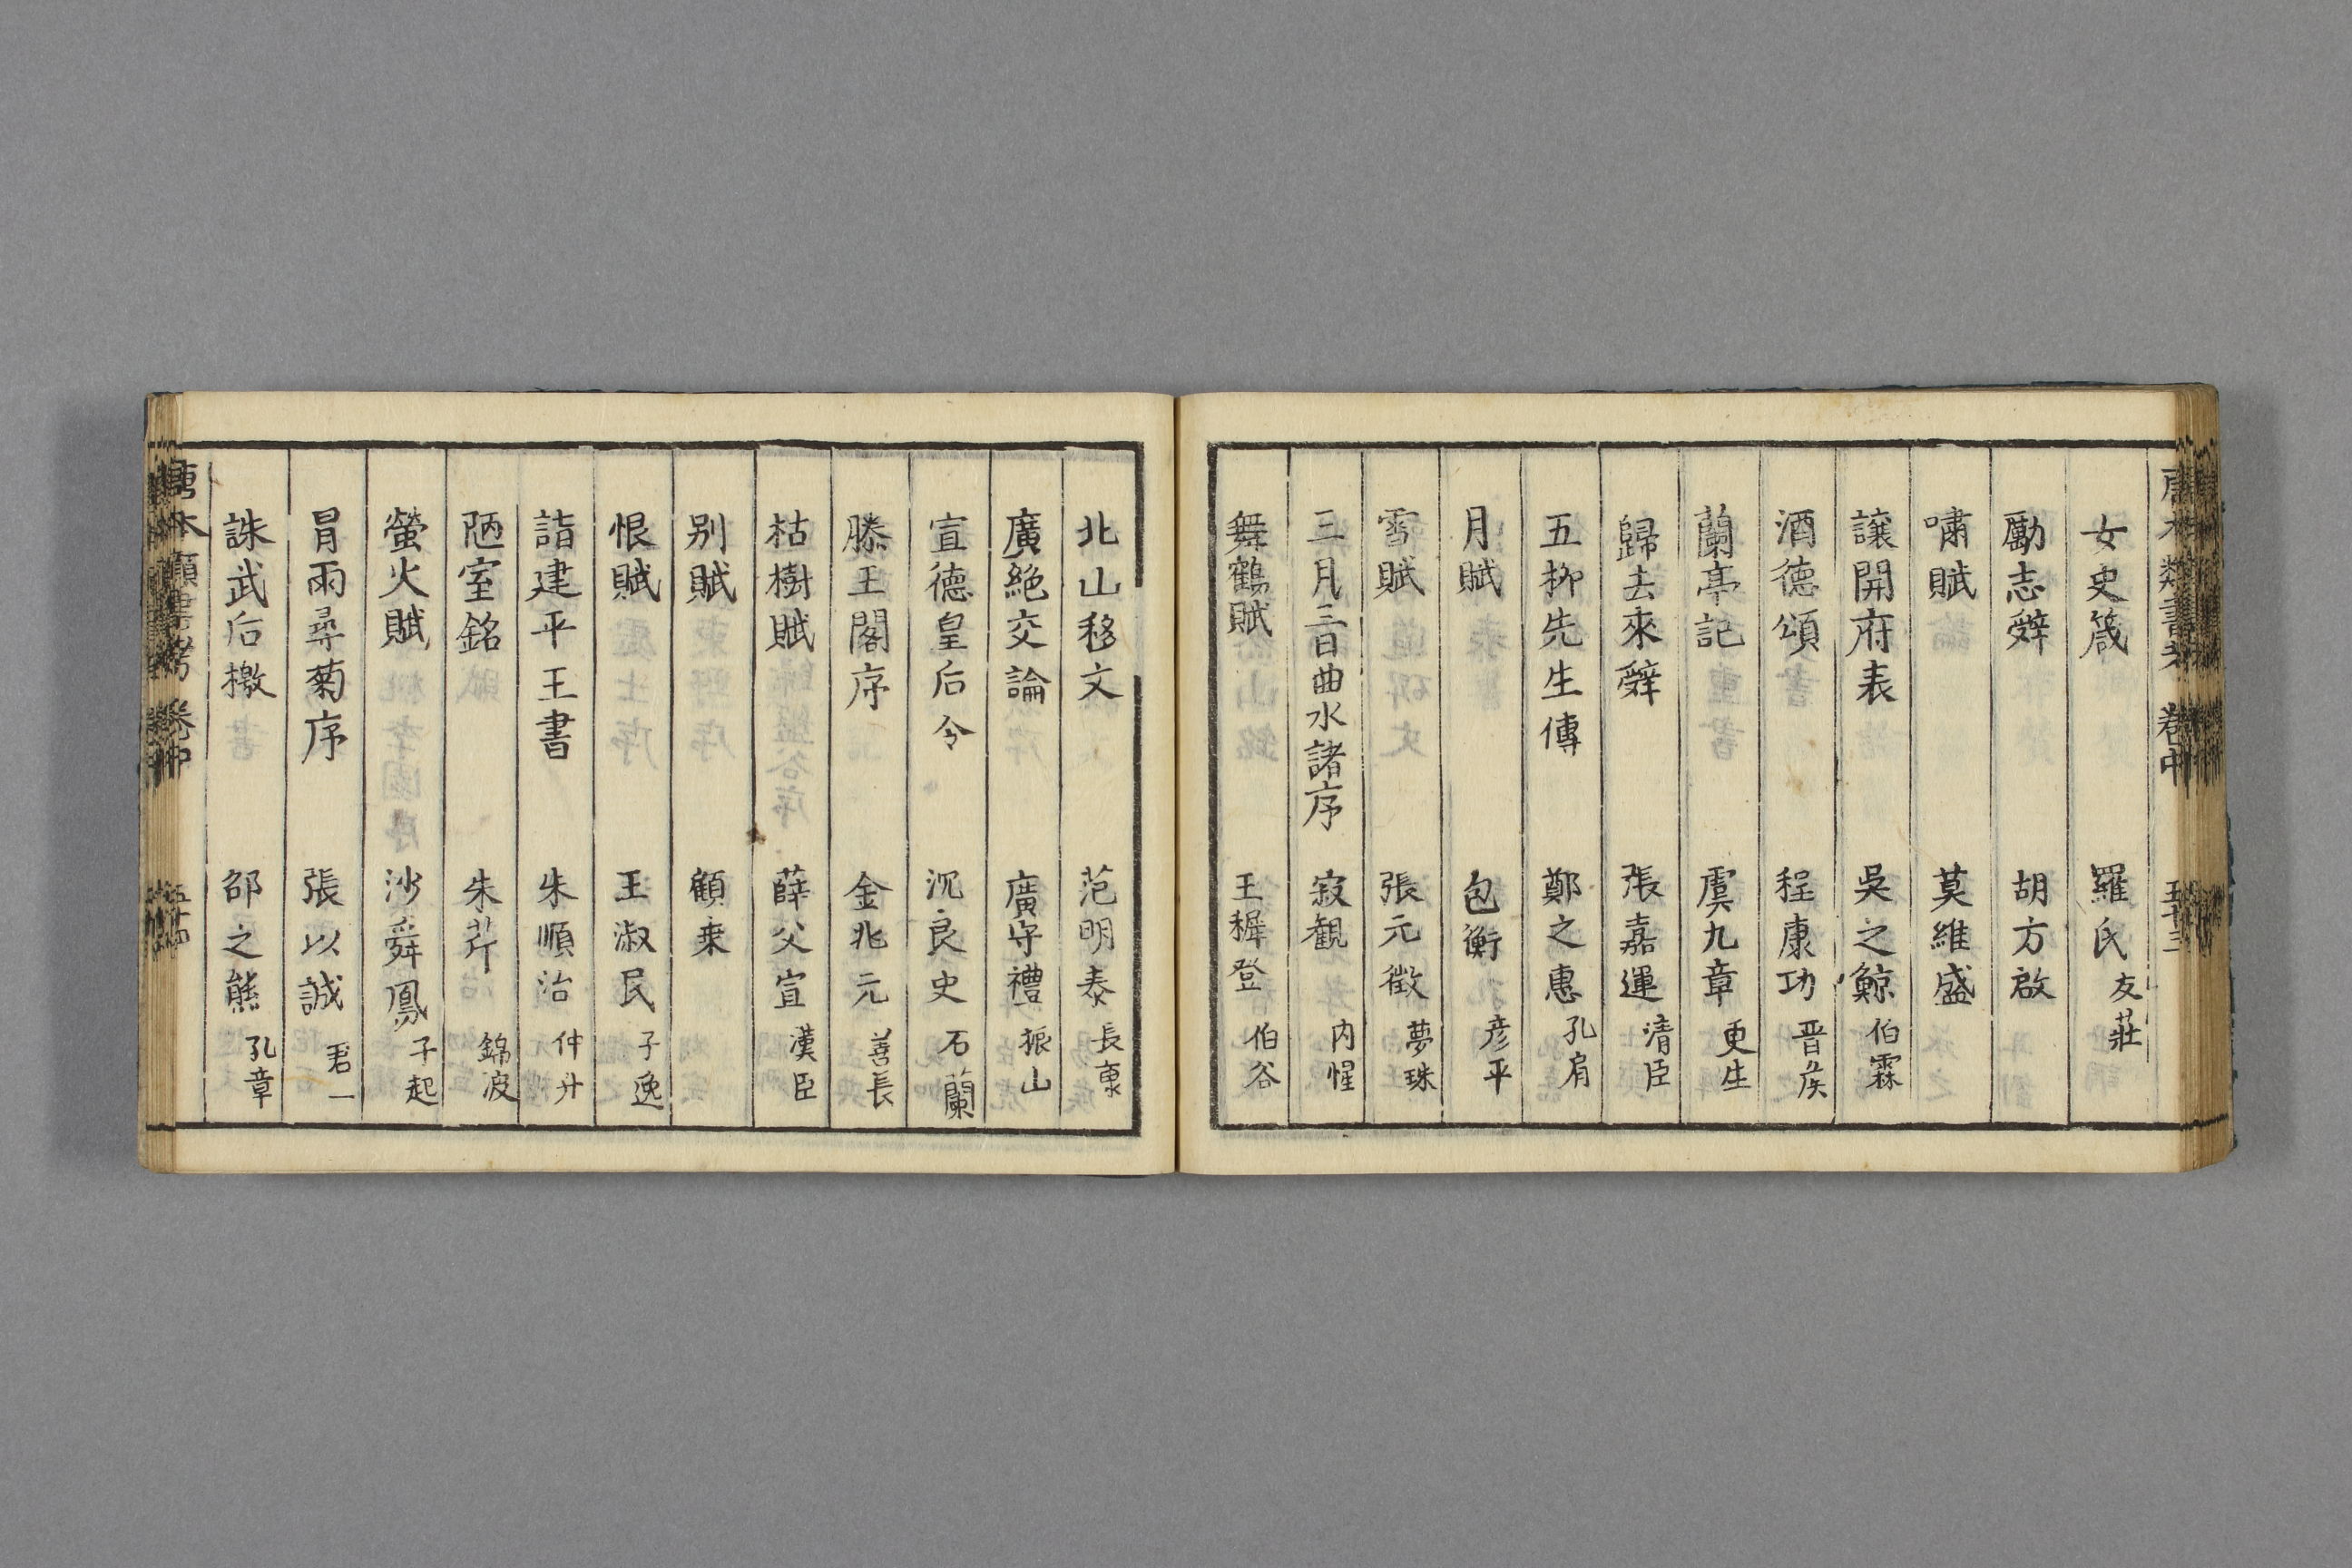 女史箴 羅氏 友莊
勵志辤 胡方啟
嘯賦 莫維盛
讓開府表 吳之鯨 伯霖
酒德頌 程康功 晋矦
蘭亭記 虞九章 更生
歸去來辤 張嘉運 清臣
五栁先生傳 鄭之惠 孔肩
月賦 包衡 彦平
雪賦 張元徵 夢珠
三月三日曲水諸序 寂觀 内惺
舞鶴賦 王穉登 伯谷
北山移文 范明泰 長康
廣絶交論 廣守禮 振山
宣德皇后令 沉良史 石蘭
滕王閣序 金兆元 善長
枯樹賦 薛父宣 漢臣
别賦 顧耒
恨賦 王淑民 子逸
詣建平王書 朱順治 仲升
陋室銘 朱芹 錦波
螢火賦 沙舜鳳 子起
冐雨尋菊序 張以誠 君一
誅武后檄 邵之熊 孔章
唐本類書考 卷中